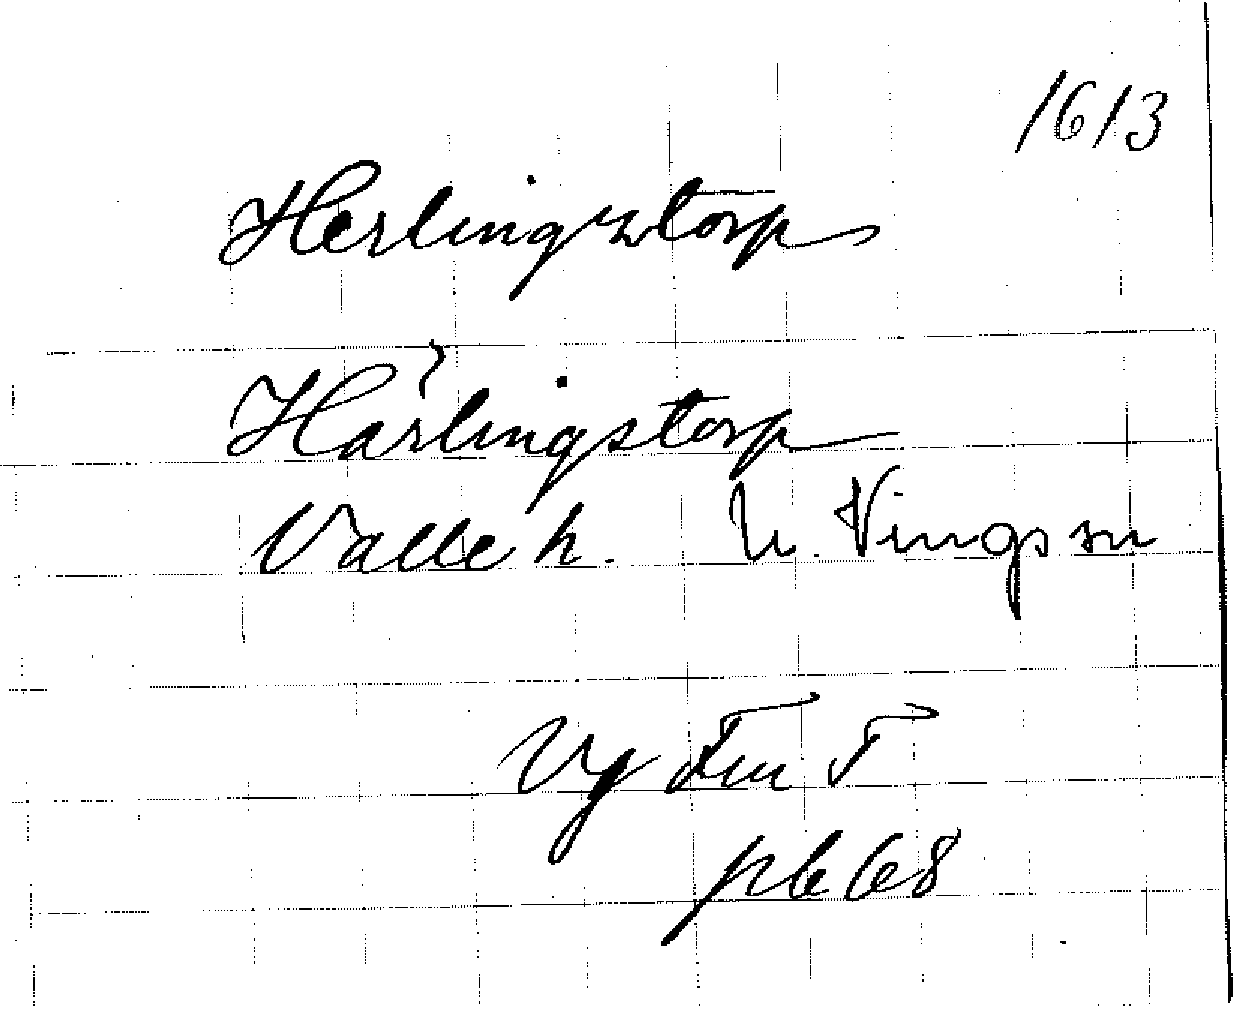 1613
Herlingztorp
Härlingstorp
Valle h. N. Vings sn
Vg
68